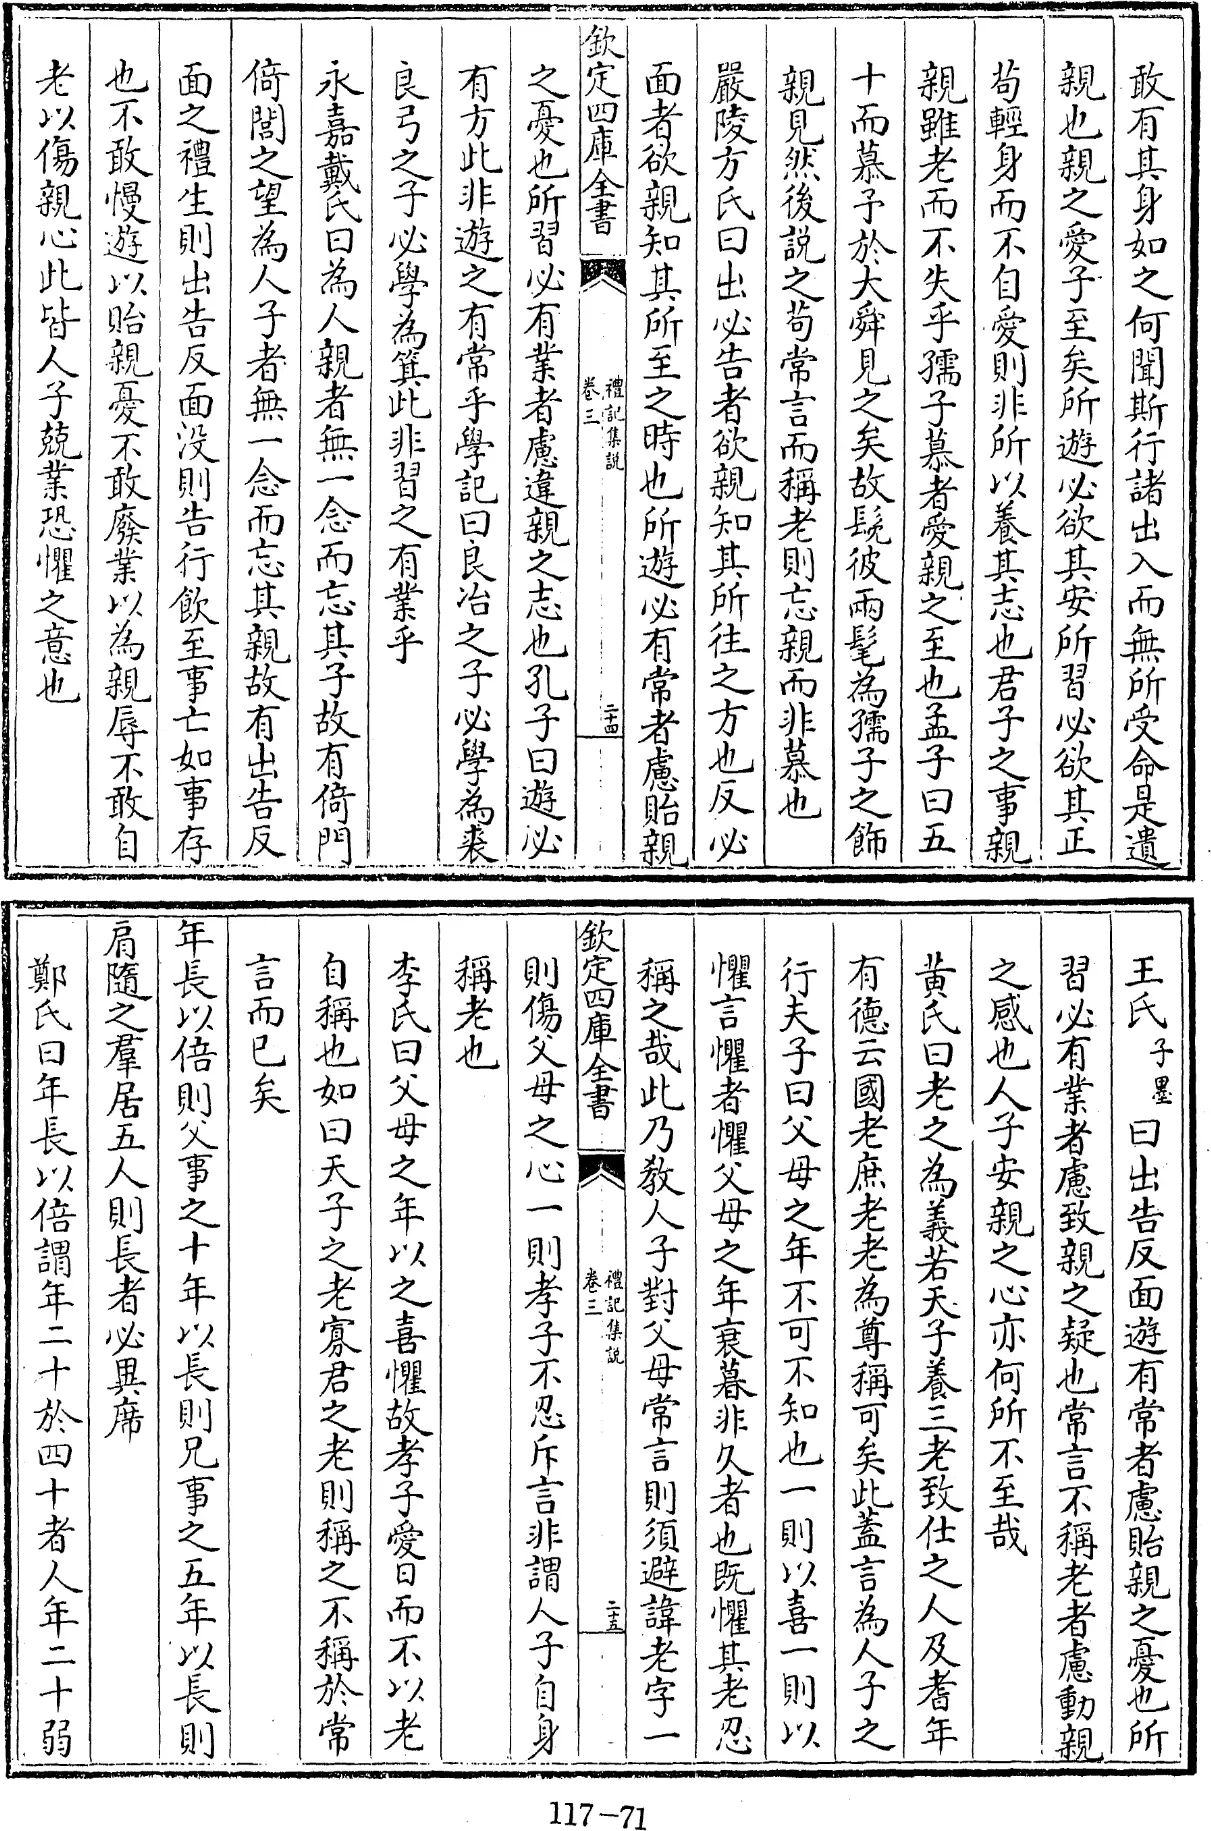 敢有其身如之何聞斯行諸出入而無所受命是遺
親也親之愛子至矣所遊必欲其安所習必欲其正
苟輕身而不自愛則非所以養其志也君子之事親
親雖老而不失乎孺子慕者愛親之至也孟子曰五
十而慕予於大舜見之矣故髧彼兩髦為孺子之飾
親見然後說之苟常言而稱老則忘親而非慕也
嚴陵方氏曰出必告者欲親知其所往之方也反必
面者欲親知其所至之時也所遊必有常者慮貽親
欽定四庫全書 禮記集說 卷三 二十四
之憂也所習必有業者慮違親之志也孔子曰遊必
有方此非遊之有常乎學記曰良冶之子必學為裘
良弓之子必學為箕此非習之有業乎
永嘉戴氏曰為人親者無一念而忘其子故有倚門
倚閭之望為人子者無一念而忘其親故有出告反
面之禮生則出告反面没則告行飲至事亡如事存
也不敢慢遊以貽親憂不敢廢業以為親辱不敢自
老以傷親心此皆人子兢業恐懼之意也
王氏子墨曰出告反面遊有常者慮貽親之憂也所
習必有業者慮致親之疑也常言不稱老者慮動親
之感也人子安親之心亦何所不至哉
黄氏曰老之為義若天子養三老致仕之人及耆年
有德云國老庶老老為尊稱可矣此蓋言為人子之
行夫子曰父母之年不可不知也一則以喜一則以
懼言懼者懼父母之年衰暮非久者也既懼其老忍
稱之哉此乃教人子對父母常言則須避諱老字一
欽定四庫全書 禮記集說 卷三 二十五
則傷父母之心一則孝子不忍斥言非謂人子自身
稱老也
李氏曰父母之年以之喜懼故孝子愛日而不以老
自稱也如曰天子之老寡君之老則稱之不稱於常
言而已矣
年長以倍則父事之十年以長則兄事之五年以長則
肩隨之羣居五人則長者必異席
鄭氏曰年長以倍謂年二十於四十者人年二十弱
117-71